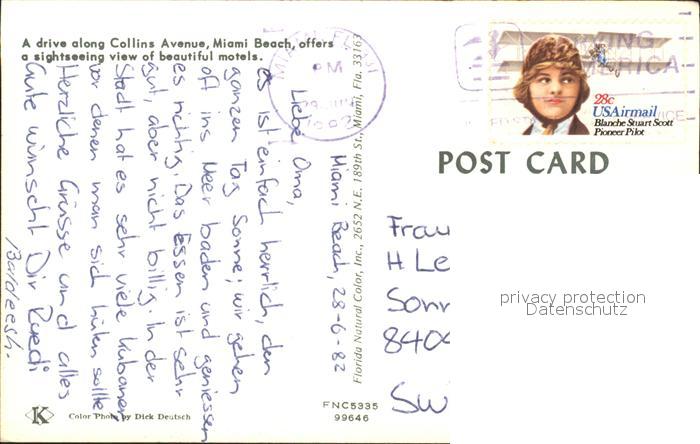 A drive along Collins Avenue, Miami Beach, offers
a sightseeing view of beautiful motels.
Miami Beach, 28-6-82
Liebe Oma,
es ist einfach herrlich, den
ganzen Tag Sonne; wir gehen
oft ins Meer baden und geniessen
es richtig. Das Essen ist sehr
gut, aber nicht billig. In der
Stadt hat es sehr viele Kubaner
vor denen man sich hüten sollte
Herzliche Grüsse und alles
Gute wünscht Dir Ruedi
Florida Natural Color, Inc., 2652 N.E. 189th St., Miami, Fla. 33163
K
Color Photo by Dick Deutsch
FNC5335
99646
MIAMI
PM
28c
USAirmail
Blanche Stuart Scott
Pioneer Pilot
POST CARD
Frau
H Le
Sonn
8404
Sw
privacy protection
Datenschutz